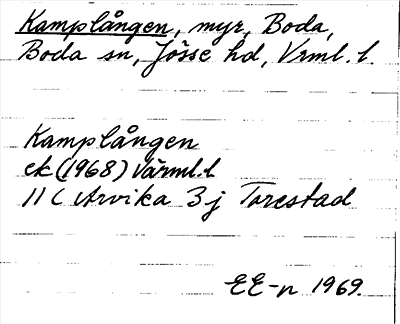 Kamplången, myr, Boda,
Boda sn, Jösse hd, Vrml. l.
Kamplången
ek (1968) Värml. l
11 C Arvika 3j Torestad
EE-n 1969.